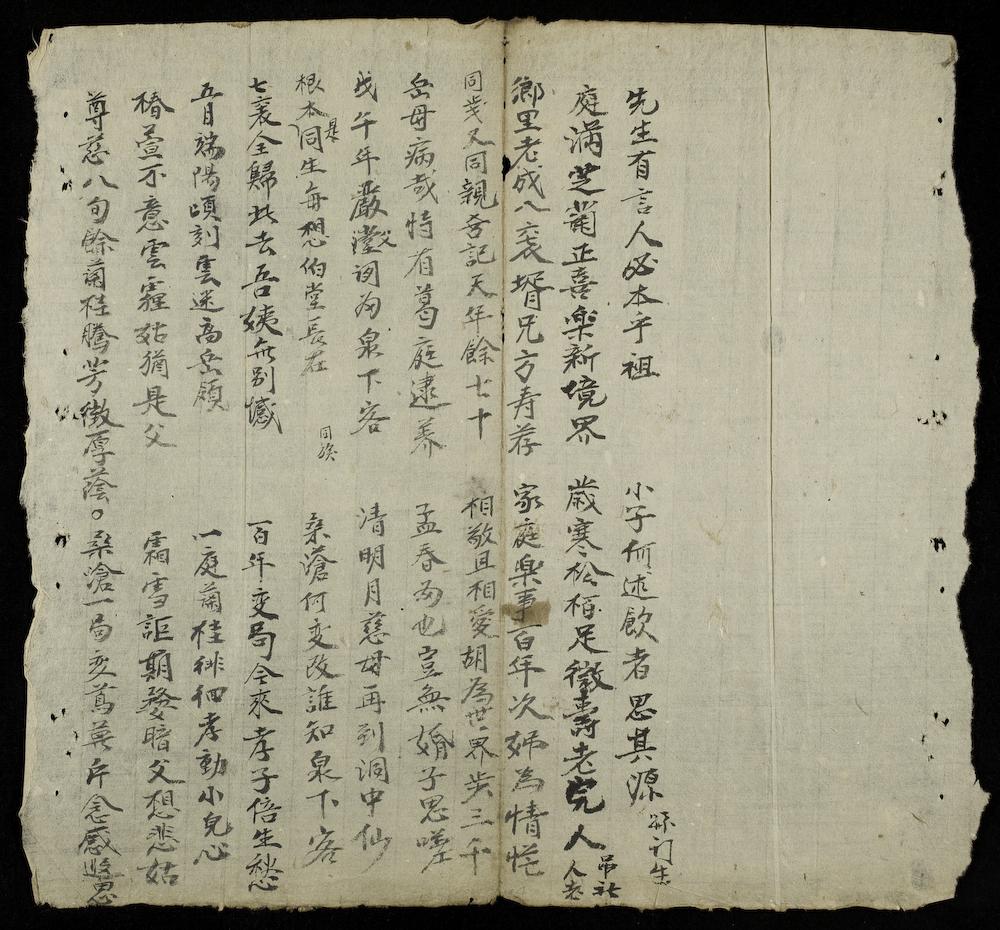 先生有言人必本乎祖 小子何述飲者思其源
庭滿芝蘭正喜樂新境界 歳寒松栢足徵壽老完人 吊社人老
鄉里老成八袠壻兄方寿荐 家庭楽事百年次姊為情忙
同歲又同親吝記天年餘七十 相敬且相愛胡為世界步三千
岳母病哉恃有葛庭逮养 孟春為也豈無婿子思嗟
戊午年嚴父詞为泉下客 清明月慈母再到洞中仙
根本是同生每想伯堂長在 同族 桑滄何变改誰知泉下客
七袠全歸此去吾姨無别憾 百年变局今來孝子倍生愁
五月端陽頃刻雲迷高岳頟 一庭蘭桂徘徊孝動小兒心
椿萱不意雲霾姑猶是父 霜雪詎期發暗父想悲姑
尊慈八旬餘蘭桂騰芳徵厚蔭。桑滄一局 念感